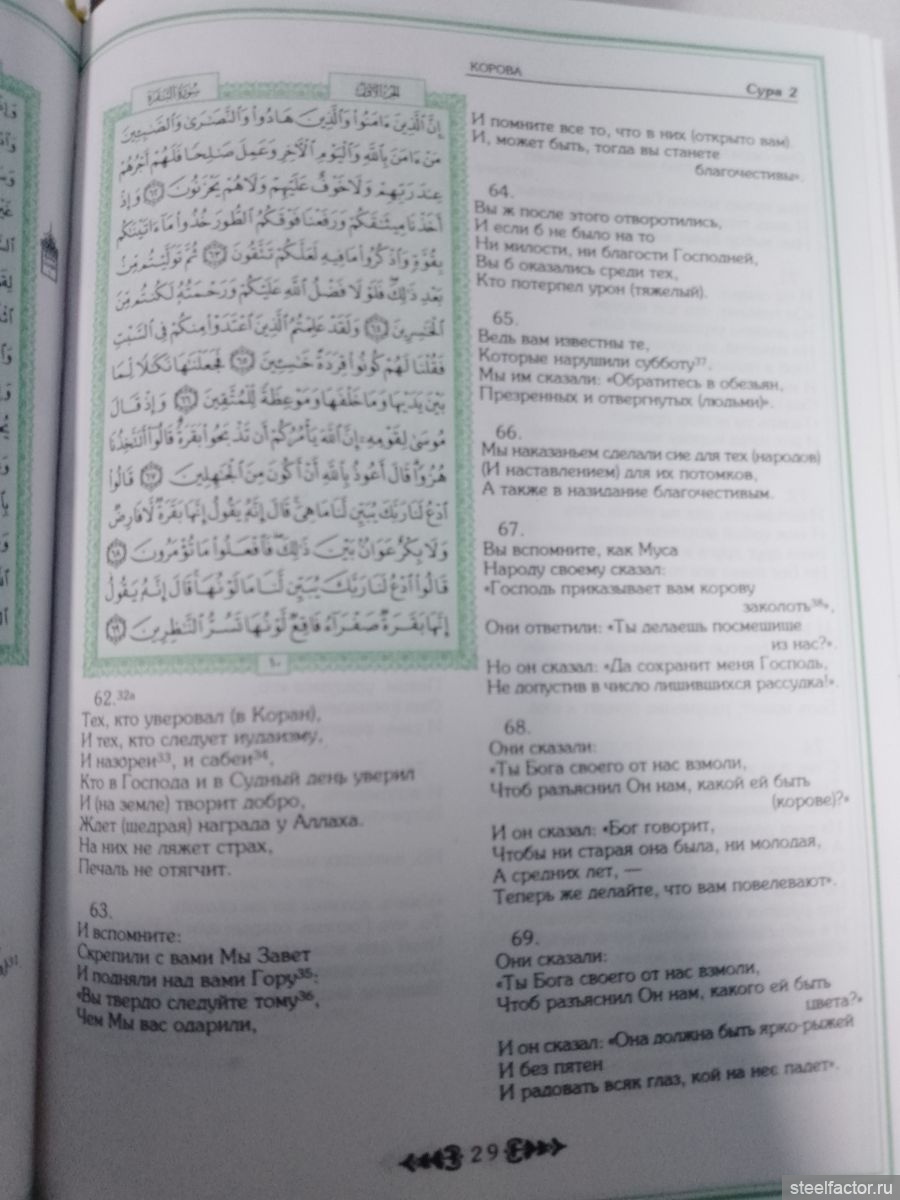 КОРОВА
Сура 2
سورة البقرة
الجزء الأول
إِنَّ ٱلَّذِينَ ءَامَنُوا۟ وَٱلَّذِينَ هَادُوا۟ وَٱلنَّصَٰرَىٰ وَٱلصَّٰبِـِٔينَ
مَنْ ءَامَنَ بِٱللَّهِ وَٱلْيَوْمِ ٱلْـَٔاخِرِ وَعَمِلَ صَٰلِحًا فَلَهُمْ أَجْرُهُمْ
عِندَ رَبِّهِمْ وَلَا خَوْفٌ عَلَيْهِمْ وَلَا هُمْ يَحْزَنُونَ ٦٢ وَإِذْ
أَخَذْنَا مِيثَٰقَكُمْ وَرَفَعْنَا فَوْقَكُمُ ٱلطُّورَ خُذُوا۟ مَآ ءَاتَيْنَٰكُم
بِقُوَّةٍ وَٱذْكُرُوا۟ مَا فِيهِ لَعَلَّكُمْ تَتَّقُونَ ٦٣ ثُمَّ تَوَلَّيْتُم مِّنۢ
بَعْدِ ذَٰلِكَ فَلَوْلَا فَضْلُ ٱللَّهِ عَلَيْكُمْ وَرَحْمَتُهُۥ لَكُنتُم مِّنَ
ٱلْخَٰسِرِينَ ٦٤ وَلَقَدْ عَلِمْتُمُ ٱلَّذِينَ ٱعْتَدَوْا۟ مِنكُمْ فِى ٱلسَّبْتِ
فَقُلْنَا لَهُمْ كُونُوا۟ قِرَدَةً خَٰسِـِٔينَ ٦٥ فَجَعَلْنَٰهَا نَكَٰلًا لِّمَا
بَيْنَ يَدَيْهَا وَمَا خَلْفَهَا وَمَوْعِظَةً لِّلْمُتَّقِينَ ٦٦ وَإِذْ قَالَ
مُوسَىٰ لِقَوْمِهِۦٓ إِنَّ ٱللَّهَ يَأْمُرُكُمْ أَن تَذْبَحُوا۟ بَقَرَةً قَالُوٓا۟ أَتَتَّخِذُنَا
هُزُوًا قَالَ أَعُوذُ بِٱللَّهِ أَنْ أَكُونَ مِنَ ٱلْجَٰهِلِينَ ٦٧ قَالُوا۟
ٱدْعُ لَنَا رَبَّكَ يُبَيِّن لَّنَا مَا هِىَ قَالَ إِنَّهُۥ يَقُولُ إِنَّهَا بَقَرَةٌ لَّا فَارِضٌ
وَلَا بِكْرٌ عَوَانٌۢ بَيْنَ ذَٰلِكَ فَٱفْعَلُوا۟ مَا تُؤْمَرُونَ ٦٨
قَالُوا۟ ٱدْعُ لَنَا رَبَّكَ يُبَيِّن لَّنَا مَا لَوْنُهَا قَالَ إِنَّهُۥ يَقُولُ
إِنَّهَا بَقَرَةٌ صَفْرَآءُ فَاقِعٌ لَّوْنُهَا تَسُرُّ ٱلنَّٰظِرِينَ ٦٩
١٠
62.³²ᵃ
Тех, кто уверовал (в Коран),
И тех, кто следует иудаизму,
И назореи³³, и сабеи³⁴,
Кто в Господа и в Судный день уверил
И (на земле) творит добро,
Ждет (щедрая) награда у Аллаха.
На них не ляжет страх,
Печаль не отягчит.
63.
И вспомните:
Скрепили с вами Мы Завет
И подняли над вами Гору³⁵:
«Вы твердо следуйте тому³⁶,
Чем Мы вас одарили,
И помните все то, что в них (открыто вам).
И, может быть, тогда вы станете
благочестивы».
64.
Вы ж после этого отворотились,
И если б не было на то
Ни милости, ни благости Господней,
Вы б оказались среди тех,
Кто потерпел урон (тяжелый).
65.
Ведь вам известны те,
Которые нарушили субботу³⁷,
Мы им сказали: «Обратитесь в обезьян,
Презренных и отвергнутых (людьми)».
66.
Мы наказаньем сделали сие для тех (народов)
(И наставлением) для их потомков,
А также в назидание благочестивым.
67.
Вы вспомните, как Муса
Народу своему сказал:
«Господь приказывает вам корову
заколоть³⁸»,
Они ответили: «Ты делаешь посмешище
из нас?».
Но он сказал: «Да сохранит меня Господь,
Не допустив в число лишившихся рассудка!».
68.
Они сказали:
«Ты Бога своего от нас взмоли,
Чтоб разъяснил Он нам, какой ей быть
(корове)?»
И он сказал: «Бог говорит,
Чтобы ни старая она была, ни молодая,
А средних лет, —
Теперь же делайте, что вам повелевают».
69.
Они сказали:
«Ты Бога своего от нас взмоли,
Чтоб разъяснил Он нам, какого ей быть
цвета?»
И он сказал: «Она должна быть ярко-рыжей
И без пятен
И радовать всяк глаз, кой на нее падет».
29
steelfactor.ru